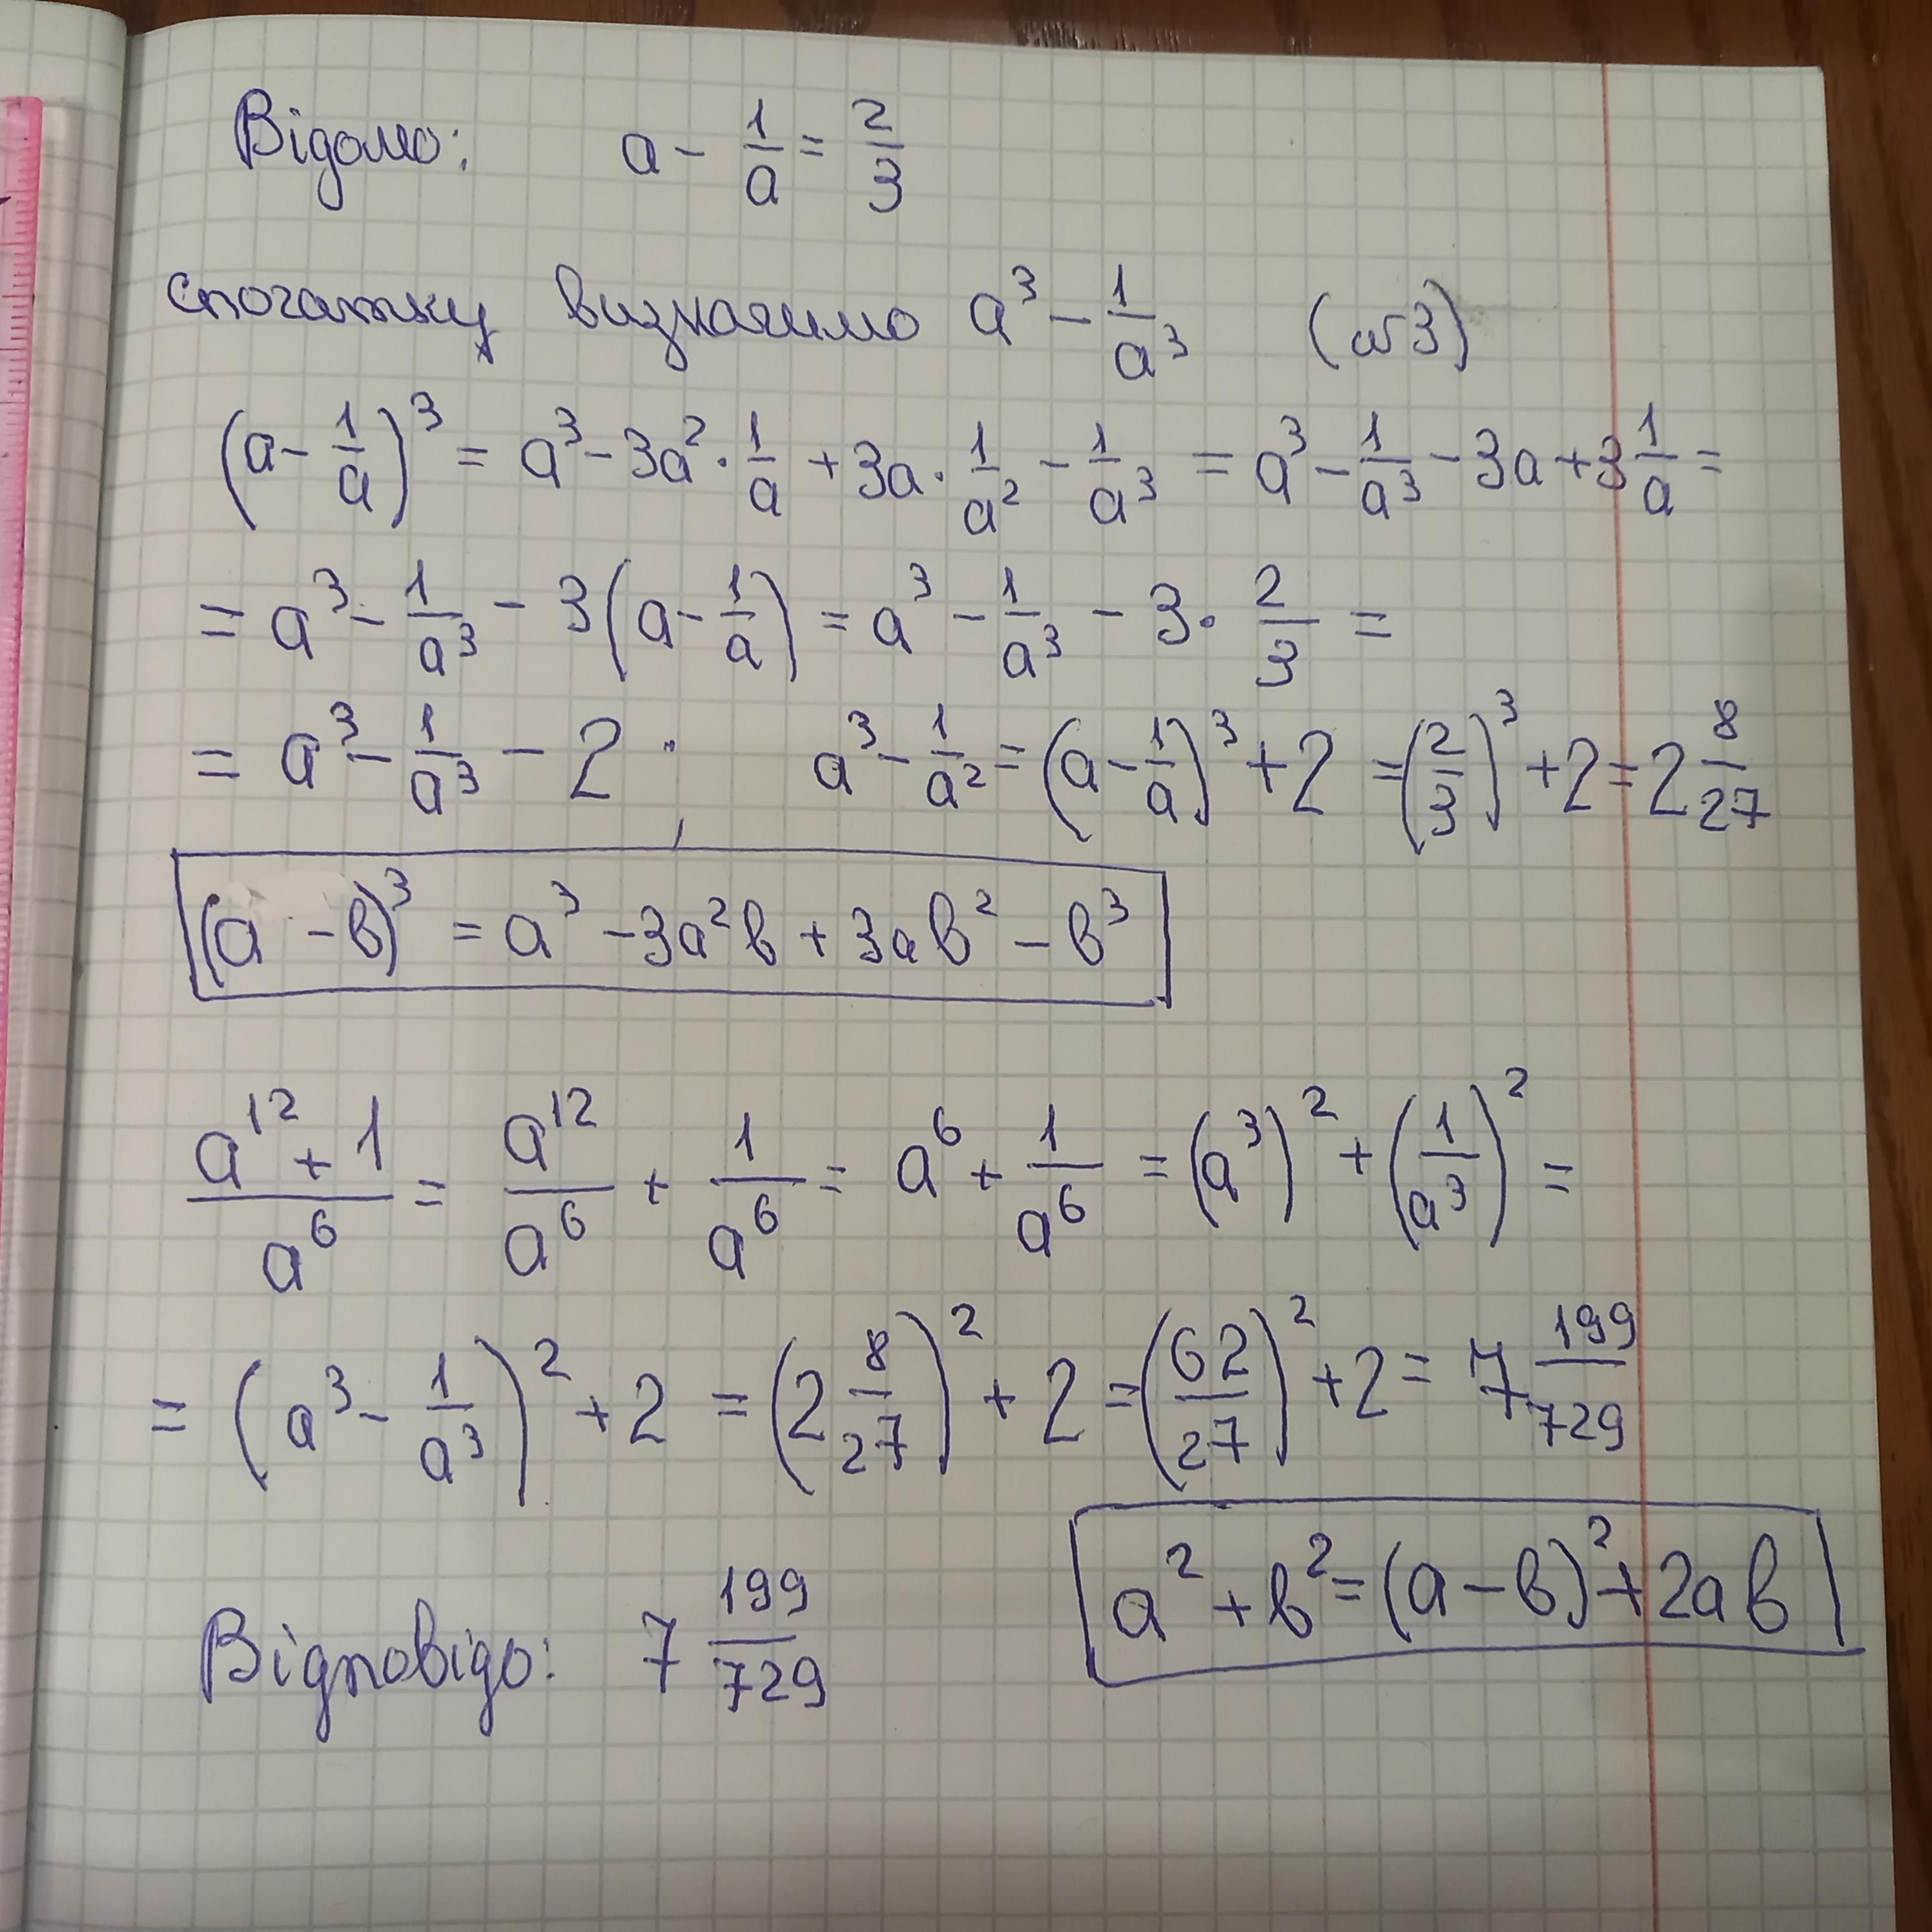 Відомо: a - 1/a = 2/3
спочатку визначимо a³ - 1/a³ (ст3)
(a - 1/a)³ = a³ - 3a² · 1/a + 3a · 1/a² - 1/a³ = a³ - 1/a³ - 3a + 3 1/a =
= a³ - 1/a³ - 3(a - 1/a) = a³ - 1/a³ - 3 · 2/3 =
= a³ - 1/a³ - 2 ; a³ - 1/a² = (a - 1/a)³ + 2 = (2/3)³ + 2 = 2 8/27
(a - b)³ = a³ - 3a²b + 3ab² - b³
(a¹² + 1)/a⁶ = a¹²/a⁶ + 1/a⁶ = a⁶ + 1/a⁶ = (a³)² + (1/a³)² =
= (a³ - 1/a³)² + 2 = (2 8/27)² + 2 = (62/27)² + 2 = 7 199/729
a² + b² = (a - b)² + 2ab
Відповідь: 7 199/729